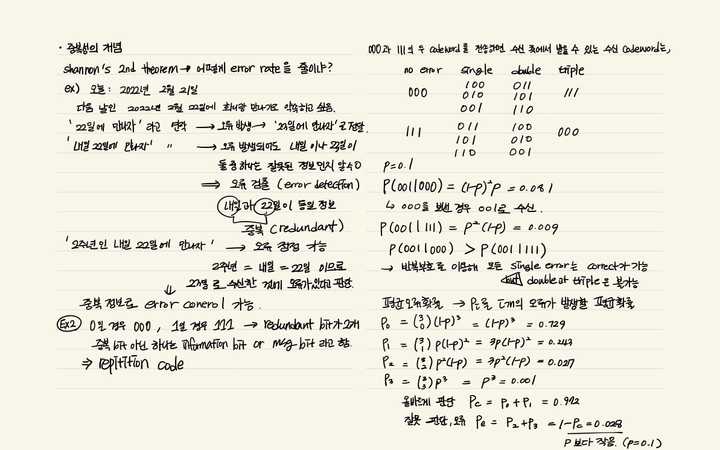 · 중복성의 개념
shannon's 2nd theorem → 어떻게 error rate을 줄이냐?
ex) 오늘 : 2022년 2월 21일
다음 날인 2022년 2월 22일에 회사랑 만나기로 약속하고 싶음.
'22일에 만나자' 라고 연락 → 오류 발생 → '27일에 만나자'로 전달.
'내일 22일에 만나자' " → 오류 발생되어도 내일이나 27일이
둘 중 하나는 잘못된 정보인지 알수O
⇒ 오류 검출 (error detection)
내일 과 22일이 동일 정보
중복 (redundant)
'2주년인 내일 22일에 만나자' → 오류 정정 가능
2주년 = 내일 = 22일 이므로
27일로 수신한 것에 오류가 있다고 판단.
↓
중복 정보로 error control 가능.
Ex2) 0일 경우 000, 1일 경우 111 → redundant bit가 2개
중복 bit 아닌 하나는 information bit or msg-bit 라고 함.
⇒ repitition code
000과 111의 두 codeword를 전송하면 수신 측에서 받을 수 있는 수신 codeword는,
no error single double triple
000 100 011 111
010 101
001 110
111 011 100 000
101 010
110 001
p=0.1
P(001|000) = (1-p)²p = 0.081
↳ 000을 보낸 경우 001로 수신.
P(001|111) = p²(1-p) = 0.009
P(001|000) > P(001|111)
→ 반복부호를 이용해 모든 single error는 correct가 가능
but double과 triple은 불가능
평균오류확률 → Pᵢ는 i개의 오류가 발생할 평균확률
P₀ = (3 0)(1-p)³ = (1-p)³ = 0.729
P₁ = (3 1) p(1-p)² = 3p(1-p)² = 0.243
P₂ = (3 2) p²(1-p) = 3p²(1-p) = 0.027
P₃ = (3 3) p³ = p³ = 0.001
올바르게 판단 Pc = P₀ + P₁ = 0.972
잘못 판단, 오류 Pe = P₂ + P₃ = 1-Pc = 0.028
p보다 작음. (p=0.1)